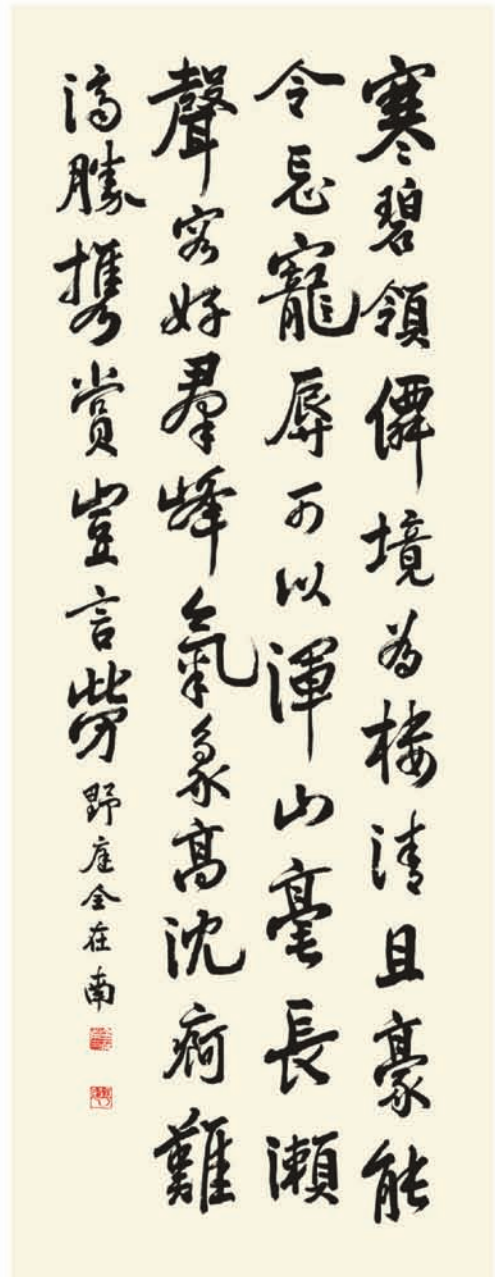 寒碧領僊境為樓清且豪能
令忘寵辱可以渾山毫長瀨
聲容好羣峰氣象高沈痾難
濟勝携賞豈言勞 野庭全在南